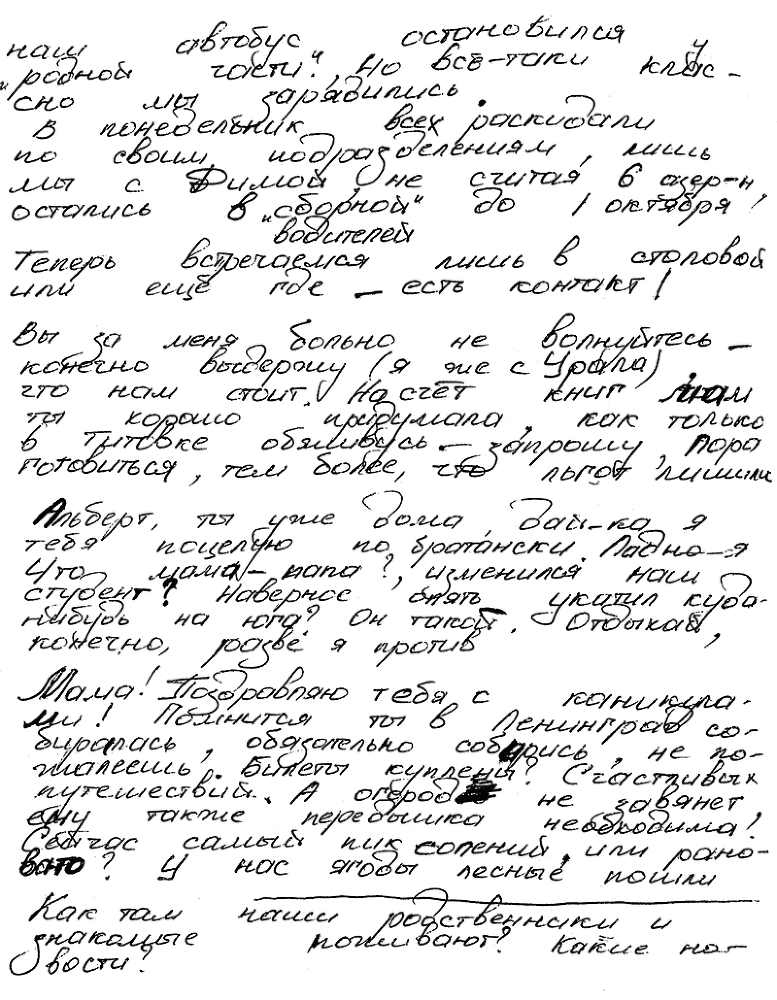 наш автобус остановился у
"родной части". Но всё-таки клас-
сно мы зарядились.
В понедельник всех раскидали
по своим подразделениям, лишь
мы с Димой, не считая 6 азер-н
остались в "сборной" до 1 октября!
водителей
Теперь встречаемся лишь в столовой
или ещё где – есть контакт!
Вы за меня больно не волнуйтесь –
конечно выдержу (я же с Урала),
что нам стоит. Насчёт книг мам
ты хорошо придумала, как только
в Титовке обживусь – запрошу, пора
готовиться, тем более, что льгот лишили
Альберт, ты уже дома, дай-ка я
тебя поцелую по братански. Ладно-я
Что мама-папа?, изменился наш
студент? Наверное опять укатил куда-
нибудь на юга? Он такой. Отдыхай,
конечно, разве я против
Мама! Поздравляю тебя с каникула-
ми! Помнится ты в Ленинград со-
биралась, обязательно соберись, не по-
жалеешь. Билеты куплены? Счастливых
путешествий. А огород не завянет,
ему также передышка необходима!
Сейчас самый пик солений, или рано-
вато? У нас ягоды лесные пошли
Как там наши родственники и
знакомые поживают? Какие но-
вости?